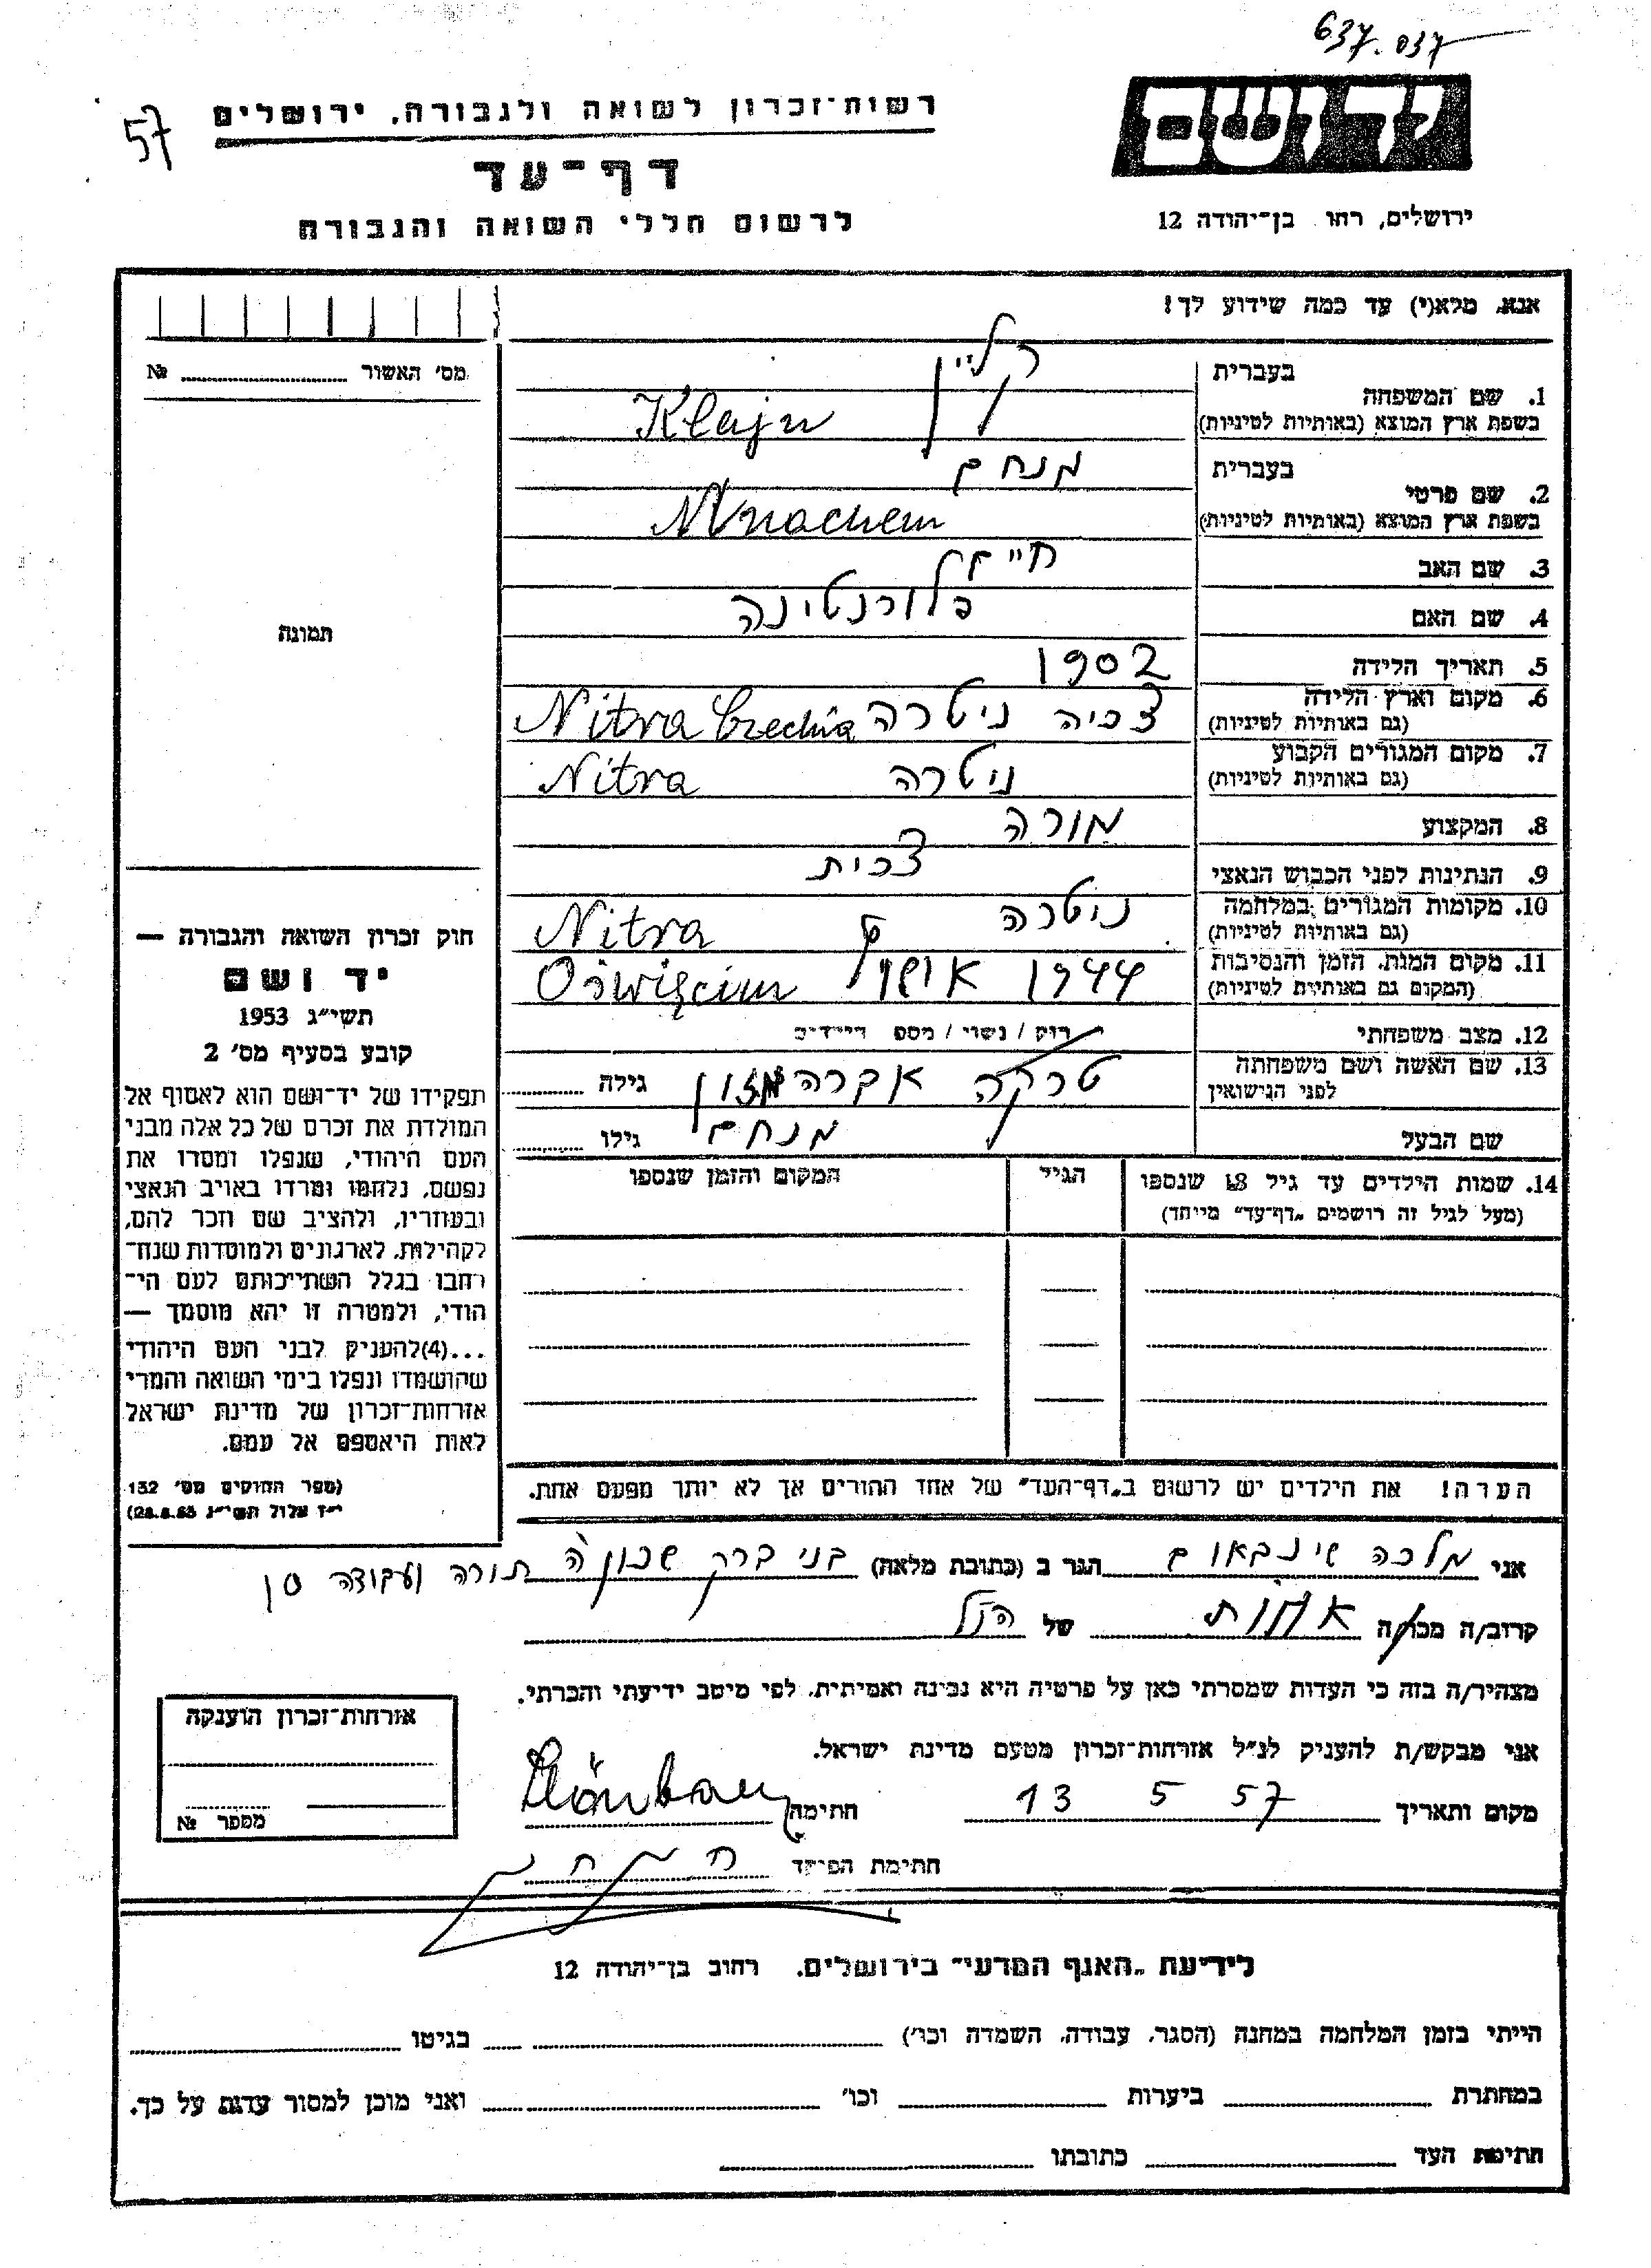 637.037
57
רשות־זכרון לשואה ולגבורה, ירושלים
דף־עד
לרשום חללי השואה והגבורה
יד ושם
ירושלים, רחו בן־יהודה 12
אנא, מלא(י) עד כמה שידוע לך!
מס׳ האשור №
תמונה
1. שם המשפחה
בעברית קליין
בשפת ארץ המוצא (באותיות לטיניות) Klajn
2. שם פרטי
בעברית מנחם
בשפת ארץ המוצא (באותיות לטיניות) Mnachem
3. שם האב חיים
4. שם האם פלורנטינה
5. תאריך הלידה 1902
6. מקום וארץ הלידה צכיה ניטרה Nitra Czechia
(גם באותיות לטיניות)
7. מקום המגורים הקבוע ניטרה Nitra
(גם באותיות לטיניות)
8. המקצוע מורה
9. הנתינות לפני הכבוש הנאצי צכית
10. מקומות המגורים במלחמה ניטרה Nitra
(גם באותיות לטיניות)
11. מקום המות, הזמן והנסיבות 1944 Oświęcim
(המקום גם באותיות לטיניות)
12. מצב משפחתי רוק / נשוי / מספ הילדים
13. שם האשה ושם משפחתה גילה
לפני הנישואין
שם הבעל מנחם גילו
14. שמות הילדים עד גיל 18 שנספו הגיל המקום והזמן שנספו
(מעל לגיל זה רושמים „דף־עד״ מייחד)
הערה! את הילדים יש לרשום ב„דף־העד״ של אחד ההורים אך לא יותר מפעם אחת.
חוק זכרון השואה והגבורה —
יד ושם
תשי״ג 1953
קובע בסעיף מס׳ 2
תפקידו של יד־ושם הוא לאסוף אל
המולדת את זכרם של כל אלה מבני
העם היהודי, שנפלו ומסרו את
נפשם, נלחמו ומרדו באויב הנאצי
ובעוזריו, ולהציב שם וזכר להם,
לקהילות, לארגונים ולמוסדות שנח־
רחבו בגלל השתייכותם לעם הי־
הודי, ולמטרה זו יהא מוסמך —
...(4)להעניק לבני העם היהודי
שהושמדו ונפלו בימי השואה והמרי
אזרחות־זכרון של מדינת ישראל
לאות היאספם אל עמם.
(ספר החוקים מס׳ 132
י״ז אלול תשי״ג 28.8.53)
אני מלכה שינבאום הגר ב (כתובת מלאה) בני ברק תורה ועבודה
קרוב/ה מכר/ה אחות של הנ״ל
מצהיר/ה בזה כי העדות שמסרתי כאן על פרטיה היא נכונה ואמיתית, לפי מיטב ידיעתי והכרתי.
אני מבקש/ת להעניק לנ״ל אזרחות־זכרון מטעם מדינת ישראל.
מקום ותאריך 13 5 57 חתימה
חתימת הפוקד
אזרחות־זכרון הוענקה
מספר №
לידיעת „האגף המדעי״ בירושלים, רחוב בן־יהודה 12
הייתי בזמן המלחמה במחנה (הסגר, עבודה, השמדה וכו׳) בגיטו
במחתרת ביערות וכו׳ ואני מוכן למסור עדות על כך.
חתימת העד כתובתו